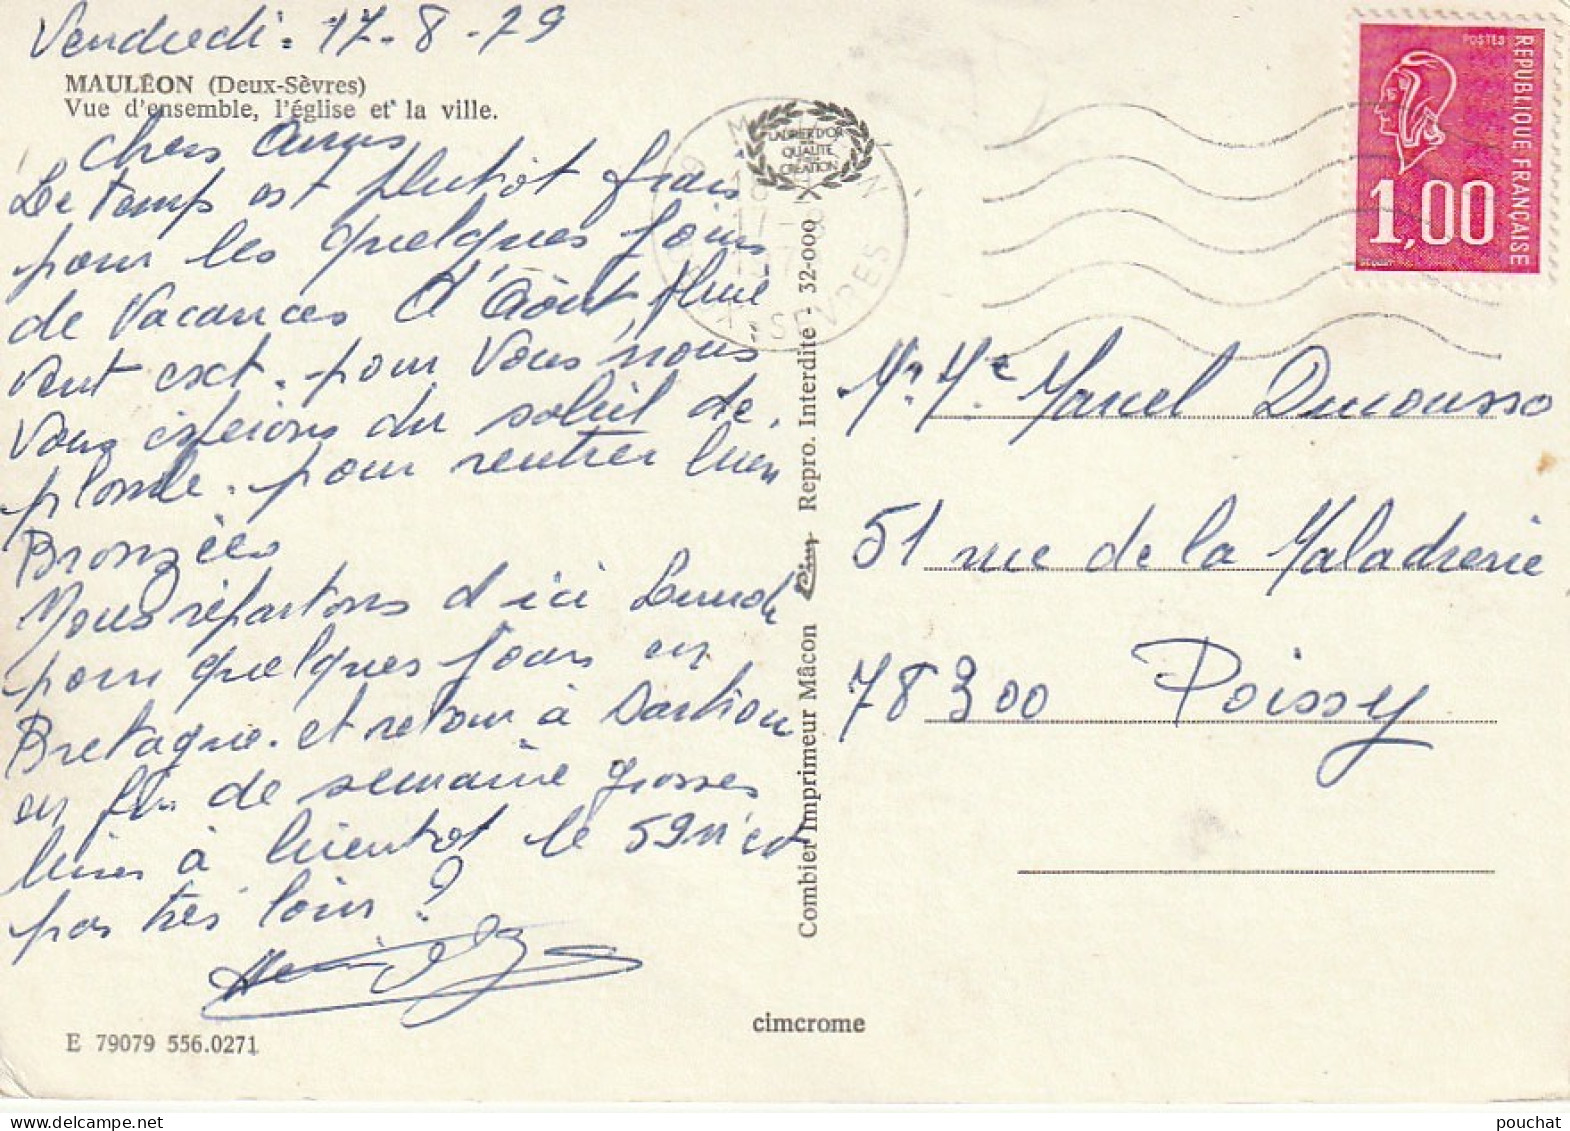 Vendredi. 17-8-79
MAULÉON (Deux-Sèvres)
Vue d'ensemble, l'église et la ville.
Chers Amis
Le temps est plutôt frais
pour les quelques jours
de Vacances d'Août, pluie
vent ect. pour Vous nous
Vous espérons du soleil de
plomb. pour rentrer bien
Bronzées
Nous répartons d'ici Lundi
pour quelques jours en
Bretagne. et retour à
en fin de semaine grosses
bises à bientôt le 59 n'est
pas très loin?
E 79079 556.0271
LAURIER D'OR
QUALITÉ
CRÉATION
DEUX-SEVRES
Combier Imprimeur Mâcon Cim Repro. Interdite - 32-000
cimcrome
POSTES
REPUBLIQUE FRANÇAISE
1,00
Mr. Me Marcel Ducousso
51 rue de la Maladrerie
78300 Poissy
pouchat